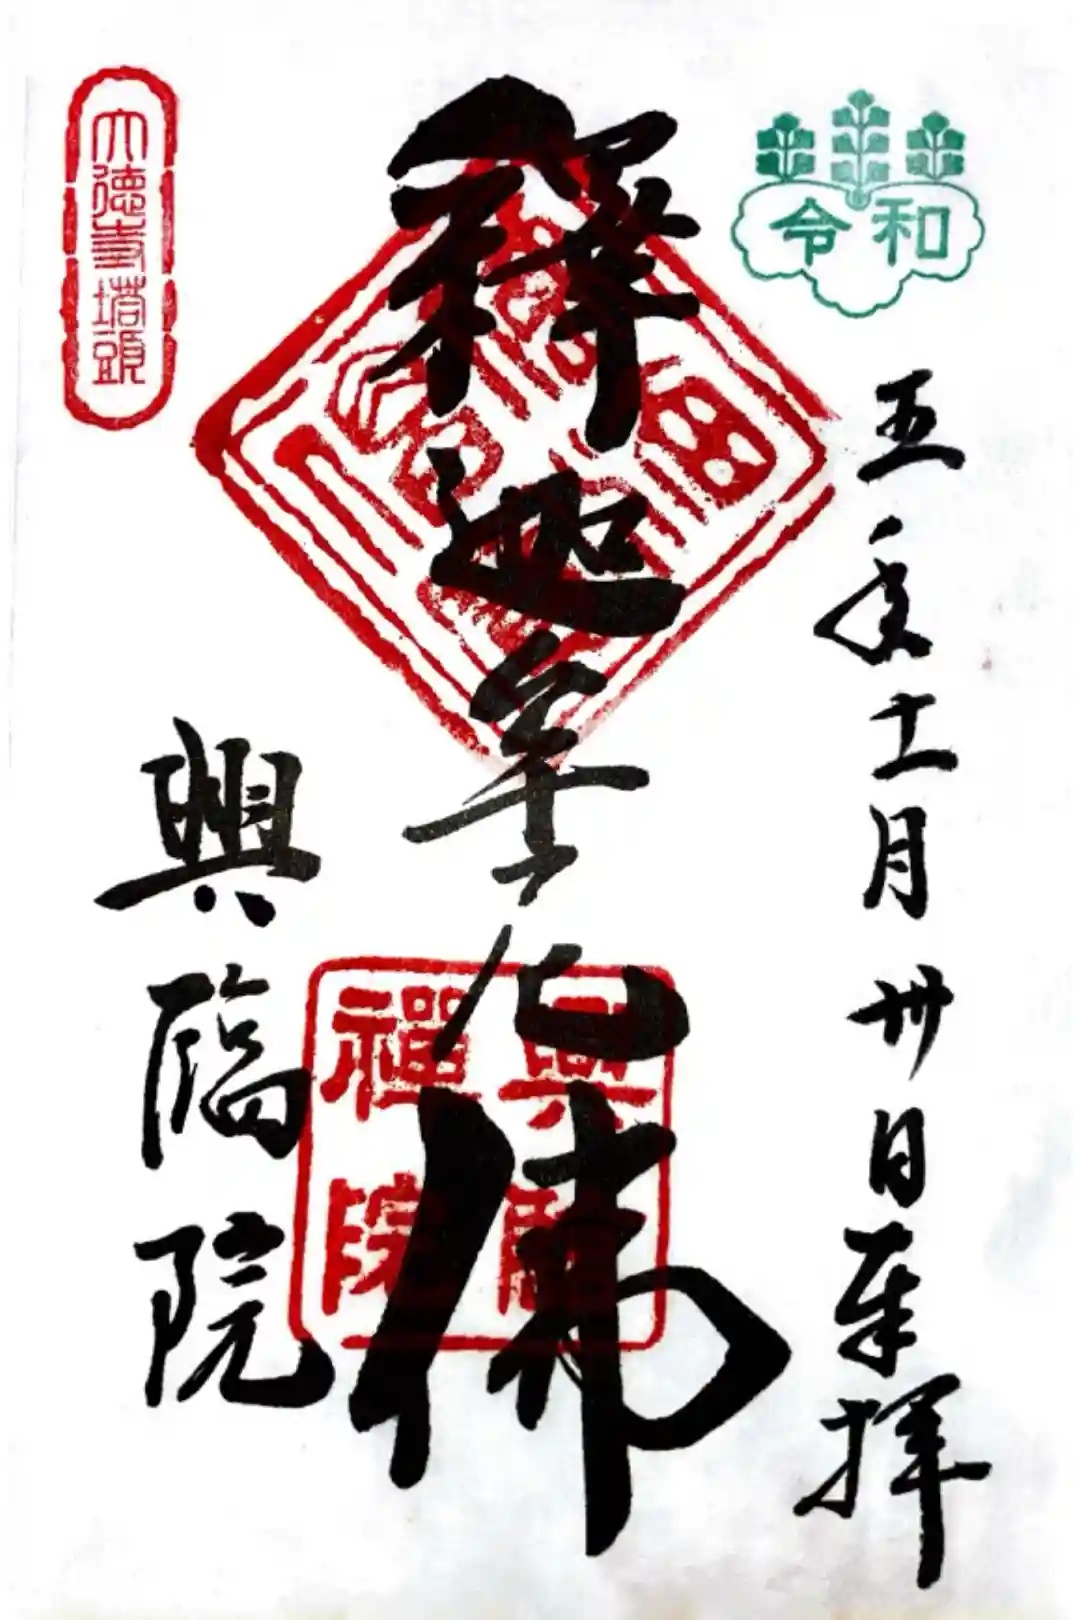 令和
五年十一月卅日奉拝
釋迦牟尼佛
興臨院
大徳寺塔頭
興臨
禅院